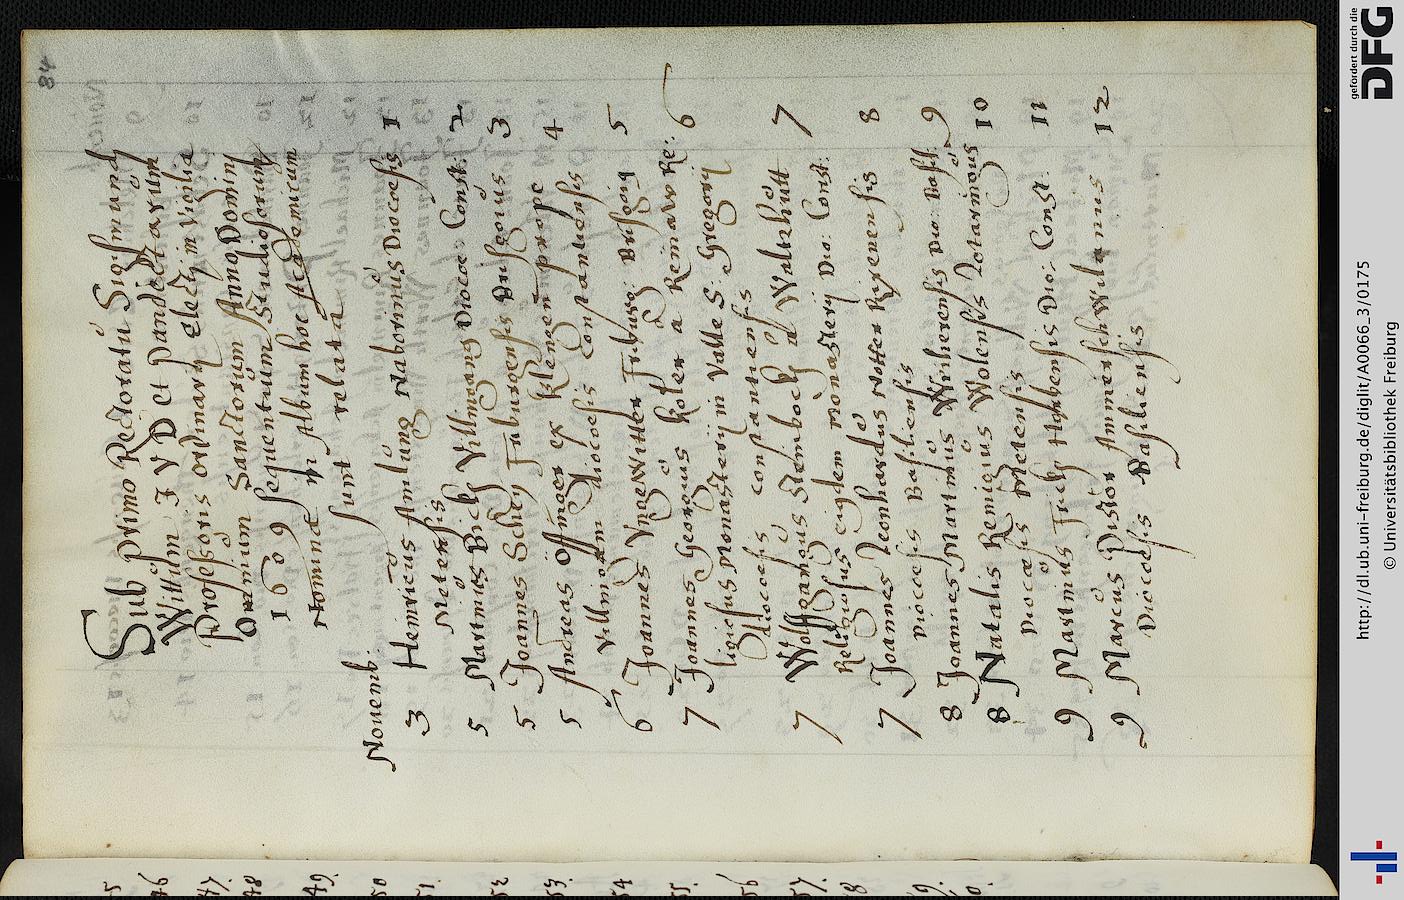 84
Sub primo Rectoratu Sigismundj
Wittum I V D et Pandectarum
Professoris ordinarij electj in Vigilia
Omnium Sanctorum Anno Dominj
1609 sequentium Studiosorum
Nomina in Album hoc Academicum
sunt relata
Nouemb.
3 Henricus Amlung Naborinus Diocesis 1
Metensis
5 Martinus Bick Villmang Dioce: Const: 2
5 Joannes Schey Friburgensis Brisgoius 3
5 Andreas Offinger ex Klengen prope 4
Villingam Diocesis Constantiensis
6 Joannes Wittler Friburg: Brisgoig 5
7 Joannes Georgius Koler a Reinaw Re: 6
ligiosus Monasterij in Valle S: Gregorij
diocesis Constantiensis
7 Wolffgangus Stembock a Waltzhutt 7
Religiosus eiusdem Monasterij Dio: Const:
7 Joannes Leonhardus Notter 8
Diocesis Basiliensis
8 Joannes Martinus Dio: Basil: 9
8 Natalis Remigius Wolensis Lotaringus 10
Diocesis Metensis
9 Martinus Frick Dio: Const: 11
9 Marcus Pistor Wilanus 12
Diocesis Basiliensis
46
47.
48
49.
50
51.
52
53.
54
55.
56
57.
58
59.
gefördert durch die
DFG
http://dl.ub.uni-freiburg.de/diglit/A0066_3/0175
© Universitätsbibliothek Freiburg